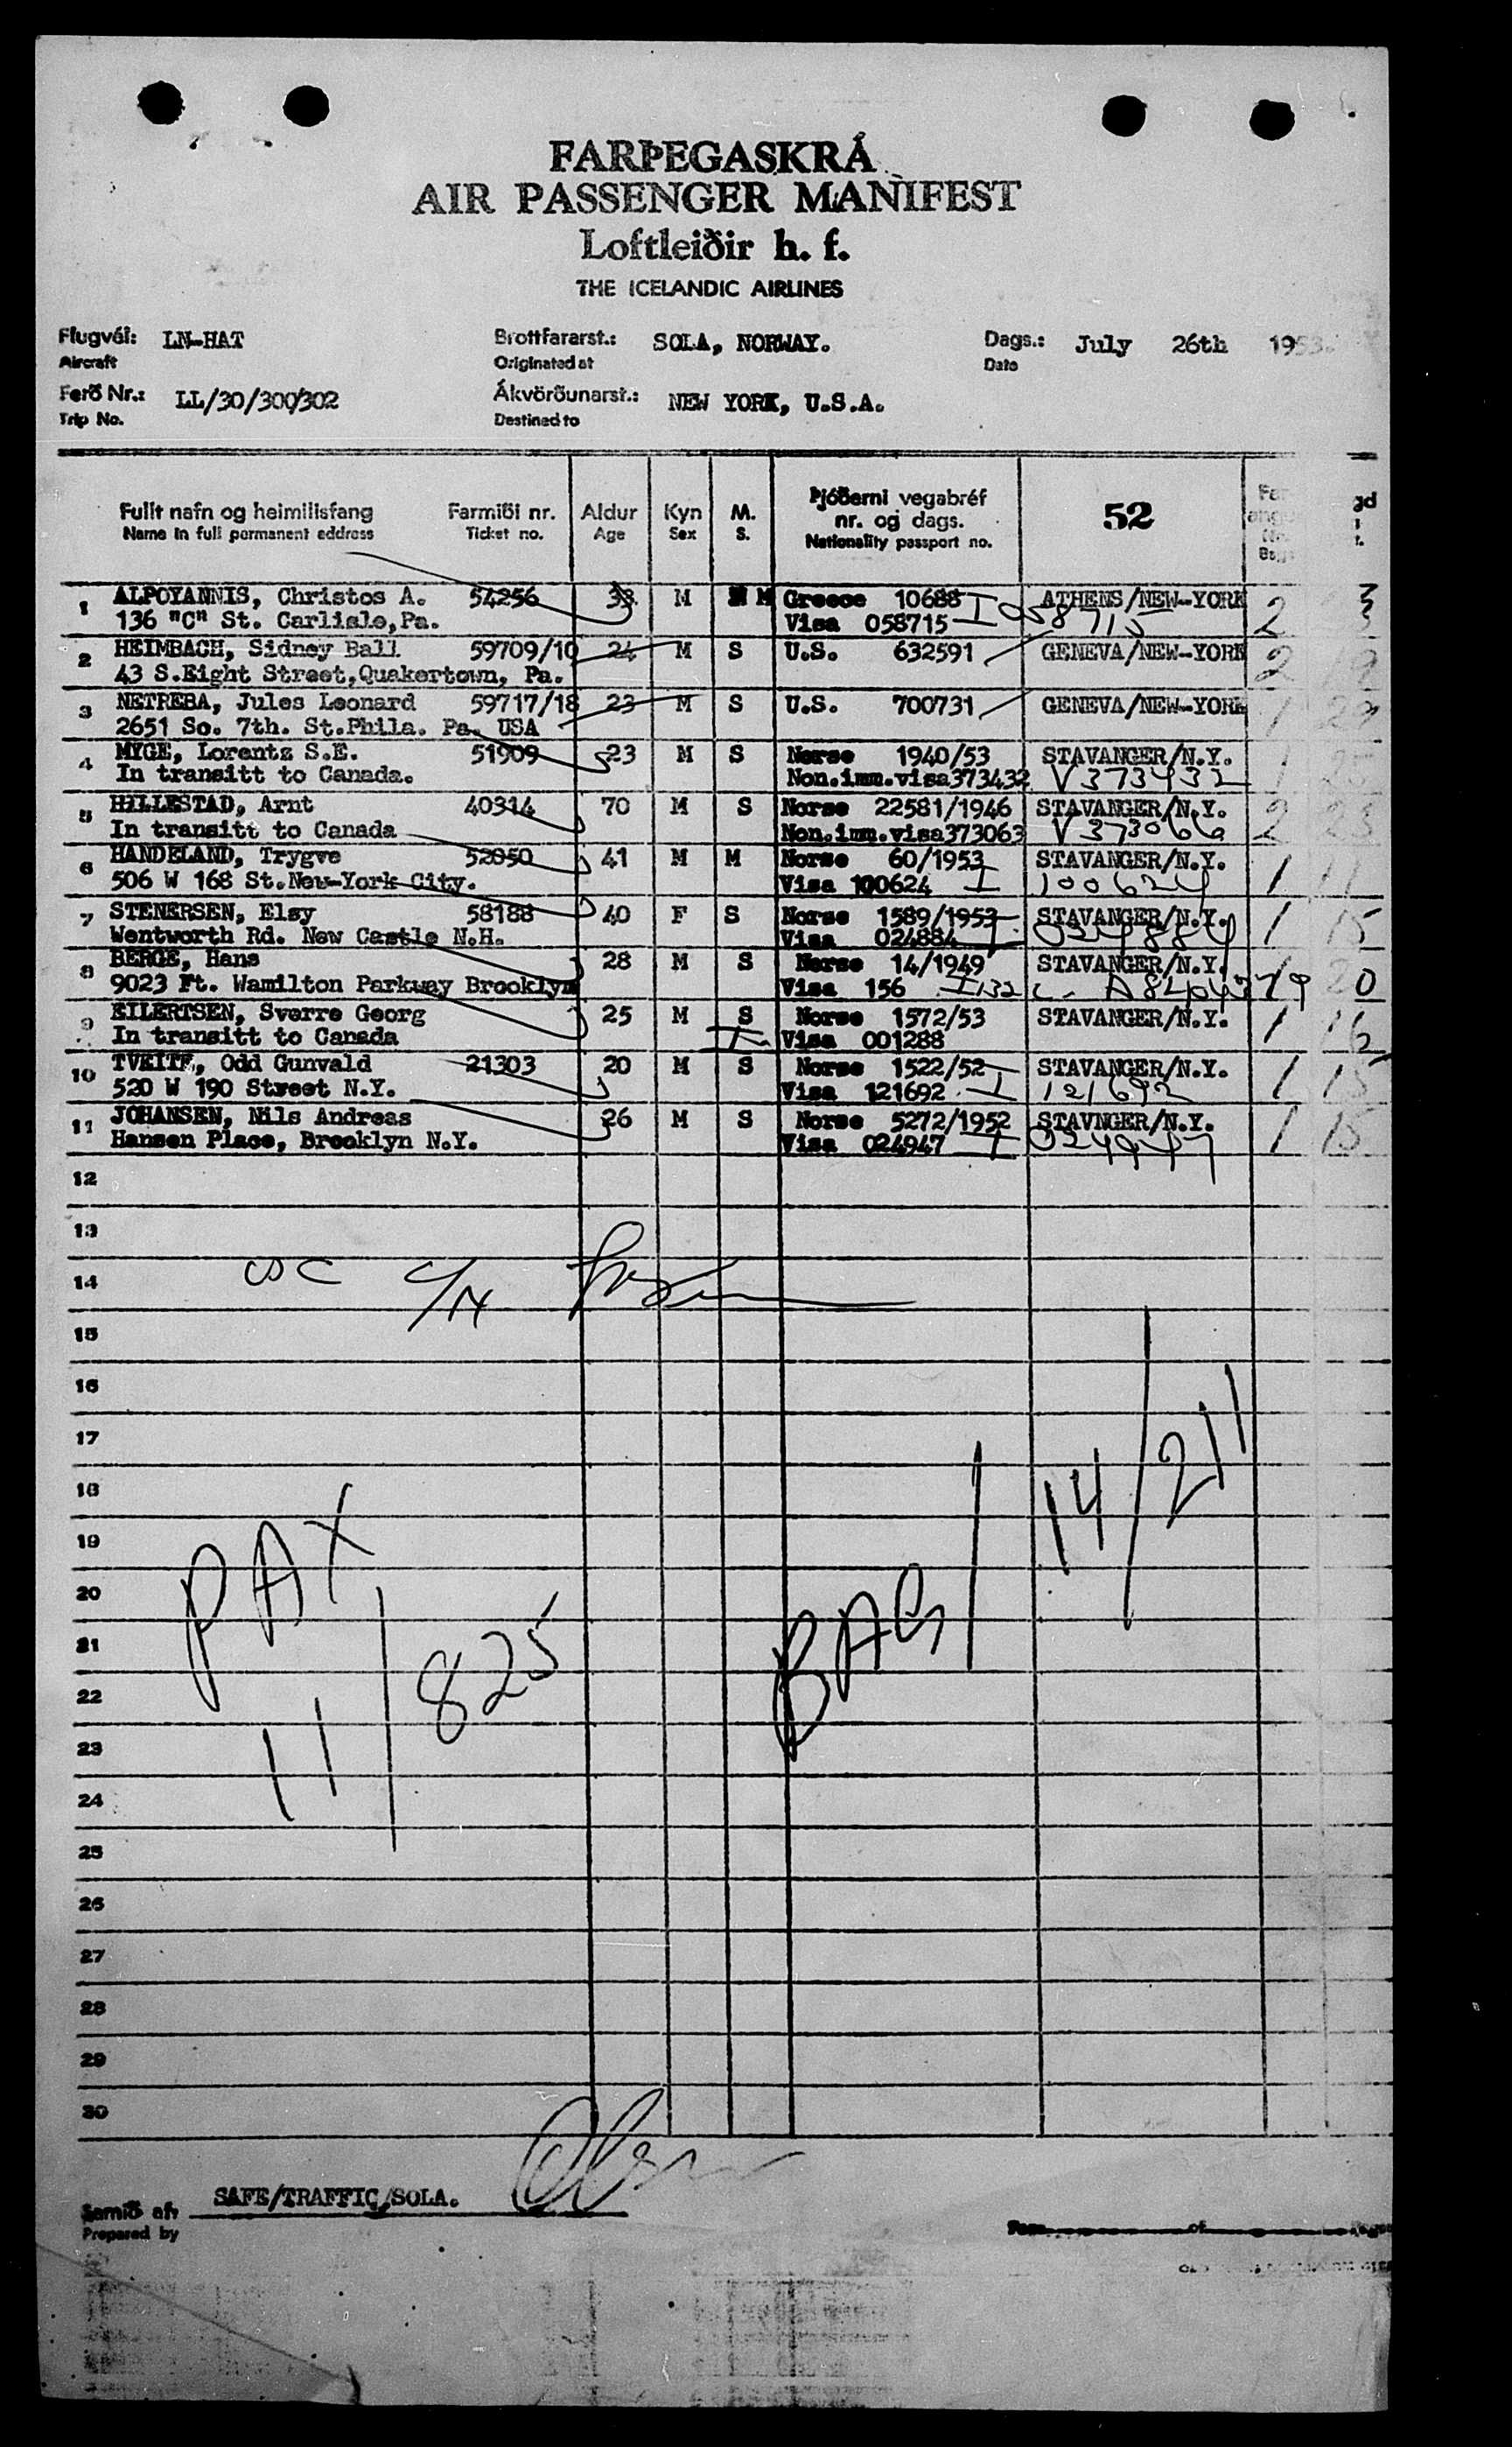 FARÞEGASKRÁ
AIR PASSENGER MANIFEST
Loftleiðir h. f.
THE ICELANDIC AIRLINES
Flugvél: LN-HAT Brottfararst.: SOLA, NORWAY. Dags.: July 26th 1953.
Aircraft Originated at Date
Ferð Nr.: LL/30/300/302 Ákvörðunarst.: NEW YORK, U.S.A.
Trip No. Destined to
Fullt nafn og heimilisfang Farmiði nr. Aldur Kyn M. Þjóðerni vegabréf nr. og dags. 52
Name in full permanent address Ticket no. Age Sex S. Nationality passport no.
1 ALPOYANNIS, Christos A. 54256 33 M M Greece 10688 ATHENS/NEW-YORK 2
136 "C" St. Carlisle,Pa. Visa 058715 I 058715
2 HEIMBACH, Sidney Ball 59709/10 24 M S U.S. 632591 GENEVA/NEW-YORK 2 19
43 S.Eight Street,Quakertown, Pa.
3 NETREBA, Jules Leonard 59717/18 23 M S U.S. 700731 GENEVA/NEW-YORK 1 29
2651 So. 7th. St.Phila. Pa. USA
4 MYGE, Lorentz S.E. 51909 23 M S Norse 1940/53 STAVANGER/N.Y. 1 25
In transitt to Canada. Non.imm.visa373432 V373432
5 HILLESTAD, Arnt 40314 70 M S Norse 22581/1946 STAVANGER/N.Y. 2 23
In transitt to Canada Non.imm.visa373063 V373066
6 HANDELAND, Trygve 52050 41 M M Norse 60/1953 STAVANGER/N.Y. 1 11
506 W 168 St.New-York City. Visa 100624 I 100624
7 STENERSEN, Elsy 58188 40 F S Norse 1589/1953 STAVANGER/N.Y. 1 15
Wentworth Rd. New Castle N.H. Visa 024884 I 024884
8 BERGE, Hans 28 M S Norse 14/1949 STAVANGER/N.Y. 1 20
9023 Ft. Wamilton Parkway Brooklyn Visa 156 I132
9 EILERTSEN, Sverre Georg 25 M S Norse 1572/53 STAVANGER/N.Y. 1 16
In transitt to Canada I Visa 001288
10 TVEITE, Odd Gunvald 21303 20 M S Norse 1522/52 STAVANGER/N.Y. 1 15
520 W 190 Street N.Y. Visa 121692 I 121692
11 JOHANSEN, Nils Andreas 26 M S Norse 5272/1952 STAVNGER/N.Y. 1 15
Hansen Place, Brooklyn N.Y. Visa 024947 I 024947
12
13
14
15
16
17
18
19
20
21
22
23
24
25
26
27
28
29
30
PAX 11/825
BAG/ 14/211
Samið af: SAFE/TRAFFIC/SOLA.
Prepared by
of